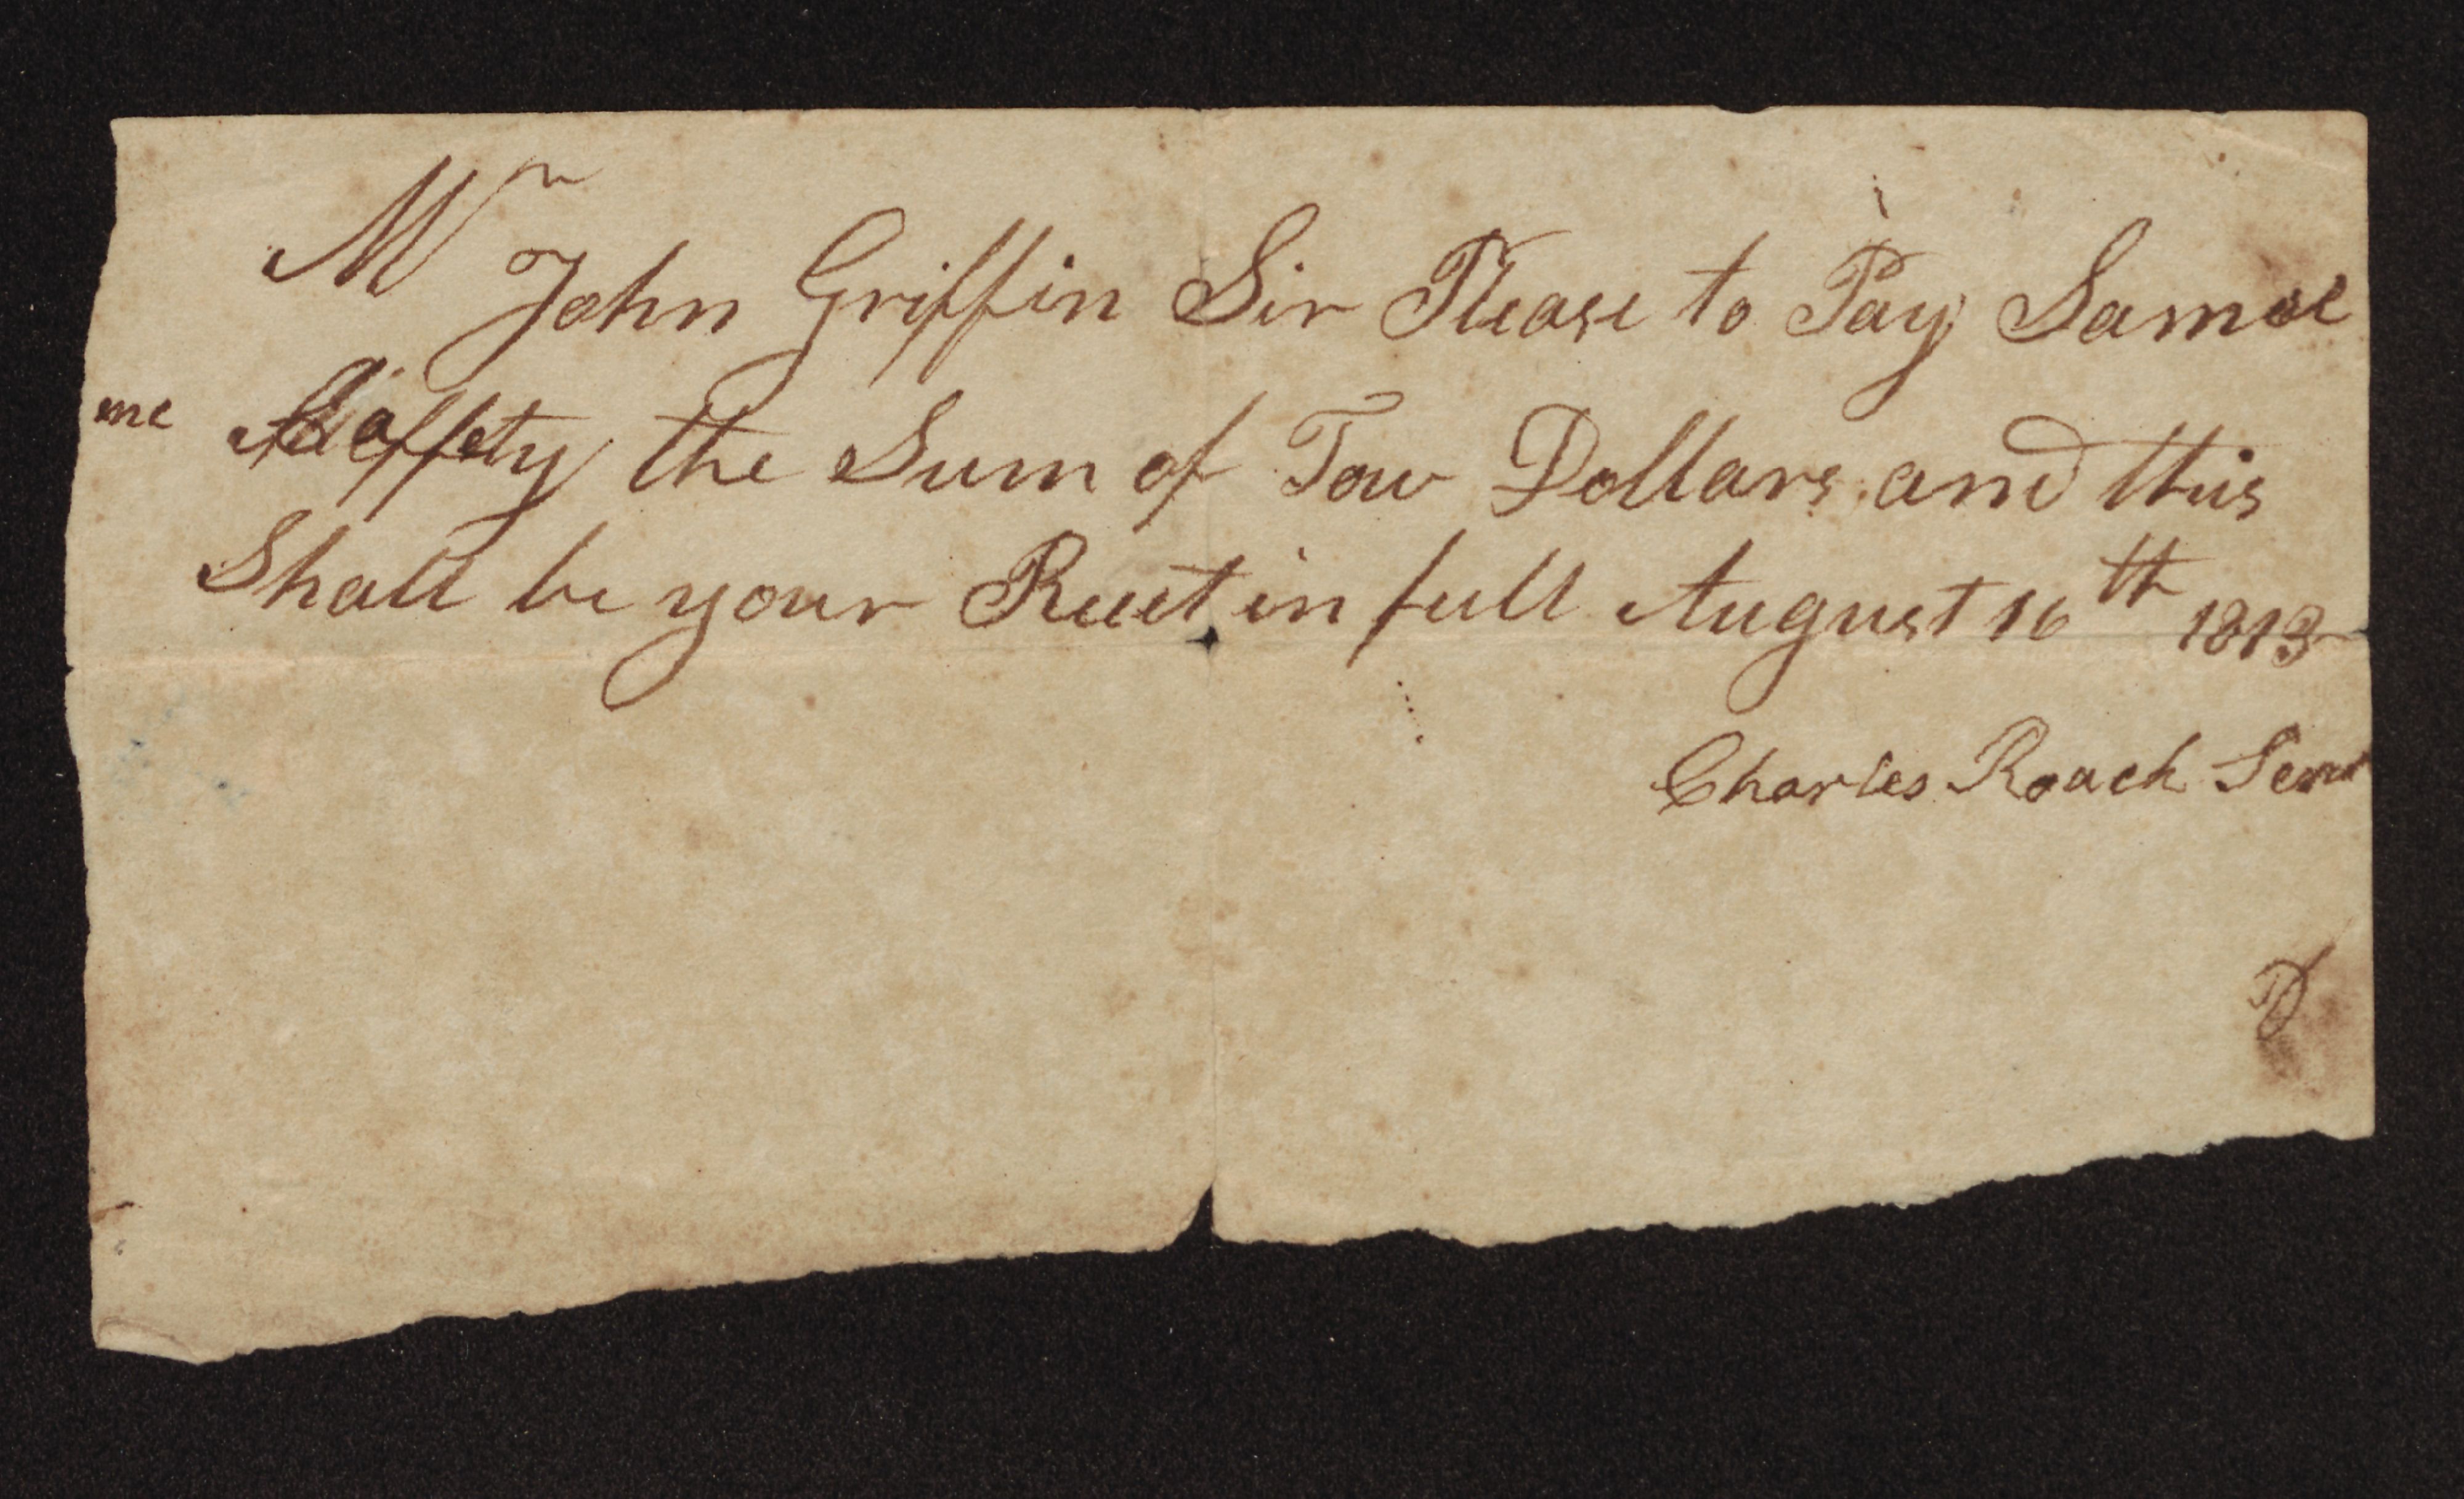 Mr
John Griffin Sir Please to Pay Samoel
me Gaffety the Sum of Tow Dollars and this
Shall be your Recet in full August 16th 1813
Charles Roach Senr
D